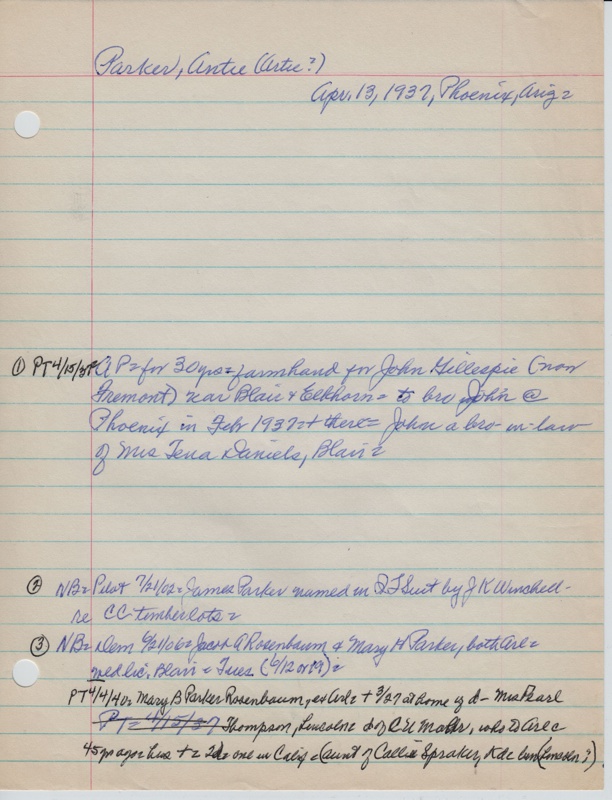 Parker, Antie (Artie?)
Apr. 13, 1937, Phoenix, Ariz=
① PT 4/15/37= AP= for 30 yrs= farmhand for John Gillespie (now
Fremont) near Blair & Elkhorn= to bro John @
Phoenix in Feb 1937=+ there= John a bro-in-law
of Mrs Tena Daniels, Blair=
② NB= Pilot 7/21/02= James Parker named in QT Suit by JK Winchell-
re CC timberlots=
③ NB= Dem 6/21/06= Jacob A Rosenbaum & Mary H Parker, both Arl=
wed lic, Blair= Tues (6/12 or 19)=
PT 4/4/40= Mary B Parker Rosenbaum, ex Arl= + 3/27 at home of d- Mrs Pearl
PT= 4/15/37 Thompson, Lincoln= d of CH, who to Arl c
45 yr ago= hus += 2d= one in Calif= (aunt of Callie Spraker, Kdc (Lincoln?)